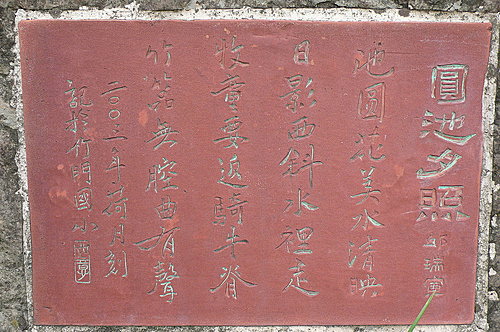 圓池夕照 邱瑞寅
池圓花美水清映
日影西斜水裡走
牧童要返騎牛脊
竹笛無腔曲有聲
二〇〇三年荷月刻
記於竹門國小